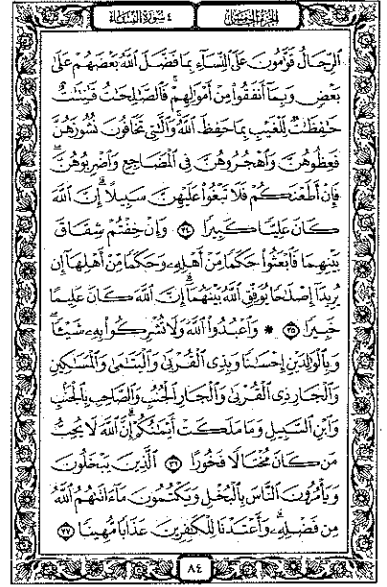 الجزء الخامس
٤ سورة النساء
ٱلرِّجَالُ قَوَّٰمُونَ عَلَى ٱلنِّسَآءِ بِمَا فَضَّلَ ٱللَّهُ بَعۡضَهُمۡ عَلَىٰ
بَعۡضٖ وَبِمَآ أَنفَقُواْ مِنۡ أَمۡوَٰلِهِمۡۚ فَٱلصَّٰلِحَٰتُ قَٰنِتَٰتٌ
حَٰفِظَٰتٞ لِّلۡغَيۡبِ بِمَا حَفِظَ ٱللَّهُۚ وَٱلَّٰتِي تَخَافُونَ نُشُوزَهُنَّ
فَعِظُوهُنَّ وَٱهۡجُرُوهُنَّ فِي ٱلۡمَضَاجِعِ وَٱضۡرِبُوهُنَّۖ
فَإِنۡ أَطَعۡنَكُمۡ فَلَا تَبۡغُواْ عَلَيۡهِنَّ سَبِيلًاۗ إِنَّ ٱللَّهَ
كَانَ عَلِيّٗا كَبِيرٗا ٣٤ وَإِنۡ خِفۡتُمۡ شِقَاقَ
بَيۡنِهِمَا فَٱبۡعَثُواْ حَكَمٗا مِّنۡ أَهۡلِهِۦ وَحَكَمٗا مِّنۡ أَهۡلِهَآ إِن
يُرِيدَآ إِصۡلَٰحٗا يُوَفِّقِ ٱللَّهُ بَيۡنَهُمَآۗ إِنَّ ٱللَّهَ كَانَ عَلِيمًا
خَبِيرٗا ٣٥ ۞ وَٱعۡبُدُواْ ٱللَّهَ وَلَا تُشۡرِكُواْ بِهِۦ شَيۡـٔٗاۖ
وَبِٱلۡوَٰلِدَيۡنِ إِحۡسَٰنٗا وَبِذِي ٱلۡقُرۡبَىٰ وَٱلۡيَتَٰمَىٰ وَٱلۡمَسَٰكِينِ
وَٱلۡجَارِ ذِي ٱلۡقُرۡبَىٰ وَٱلۡجَارِ ٱلۡجُنُبِ وَٱلصَّاحِبِ بِٱلۡجَنۢبِ
وَٱبۡنِ ٱلسَّبِيلِ وَمَا مَلَكَتۡ أَيۡمَٰنُكُمۡۗ إِنَّ ٱللَّهَ لَا يُحِبُّ
مَن كَانَ مُخۡتَالٗا فَخُورًا ٣٦ ٱلَّذِينَ يَبۡخَلُونَ
وَيَأۡمُرُونَ ٱلنَّاسَ بِٱلۡبُخۡلِ وَيَكۡتُمُونَ مَآ ءَاتَىٰهُمُ ٱللَّهُ
مِن فَضۡلِهِۦۗ وَأَعۡتَدۡنَا لِلۡكَٰفِرِينَ عَذَابٗا مُّهِينٗا ٣٧
٨٤